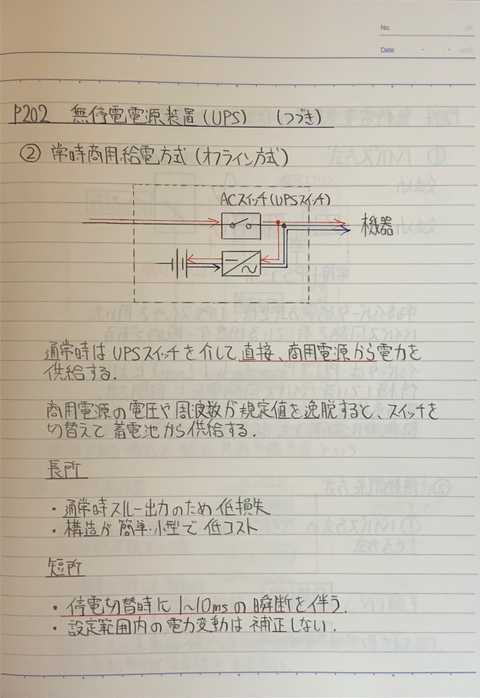 No.
Date
P202 無停電電源装置(UPS) (つづき)
② 常時商用給電方式(オフライン方式)
ACスイッチ(UPSスイッチ)
機器
通常時はUPSスイッチを介して直接、商用電源から電力を
供給する.
商用電源の電圧や周波数が規定値を逸脱すると、スイッチを
切替えて蓄電池から供給する.
長所
・通常時スルー出力のため低損失
・構造が簡単・小型で低コスト
短所
・停電切替時に1~10msの瞬断を伴う.
・設定範囲内の電力変動は補正しない.